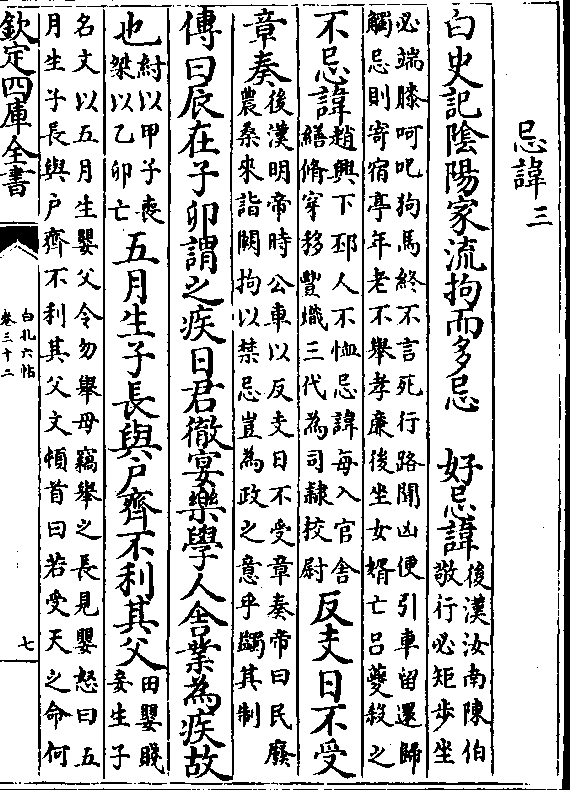 忌諱三
白史記隂陽家流拘而多忌　好忌諱
後漢汝南陳伯
敬行必矩步坐
必端膝呵叱狗馬終不言死行路聞凶便引車留還歸
觸忌則寄宿亭年老不舉孝廉後坐女婿亡吕夔殺之
不忌諱
趙興下邳人不恤忌諱每入官舍
繕脩穿移豐熾三代為司隸挍尉
反支日不受
章奏
後漢明帝時公車以反支日不受章奏帝曰民廢
農桑来詣闕拘以禁忌豈為政之意乎蠲其制
傳曰辰在子卯謂之疾日君徹宴樂學人舍業為疾故
也
紂以甲子喪
桀以乙卯亡
五月生子長與户齊不利其父
田嬰賤
妾生子
名文以五月生嬰父令勿舉母竊舉之長見嬰怒曰五
月生子長與户齊不利其父文頓首曰若受天之命何
欽定四庫全書
白孔六帖
卷三十二
七